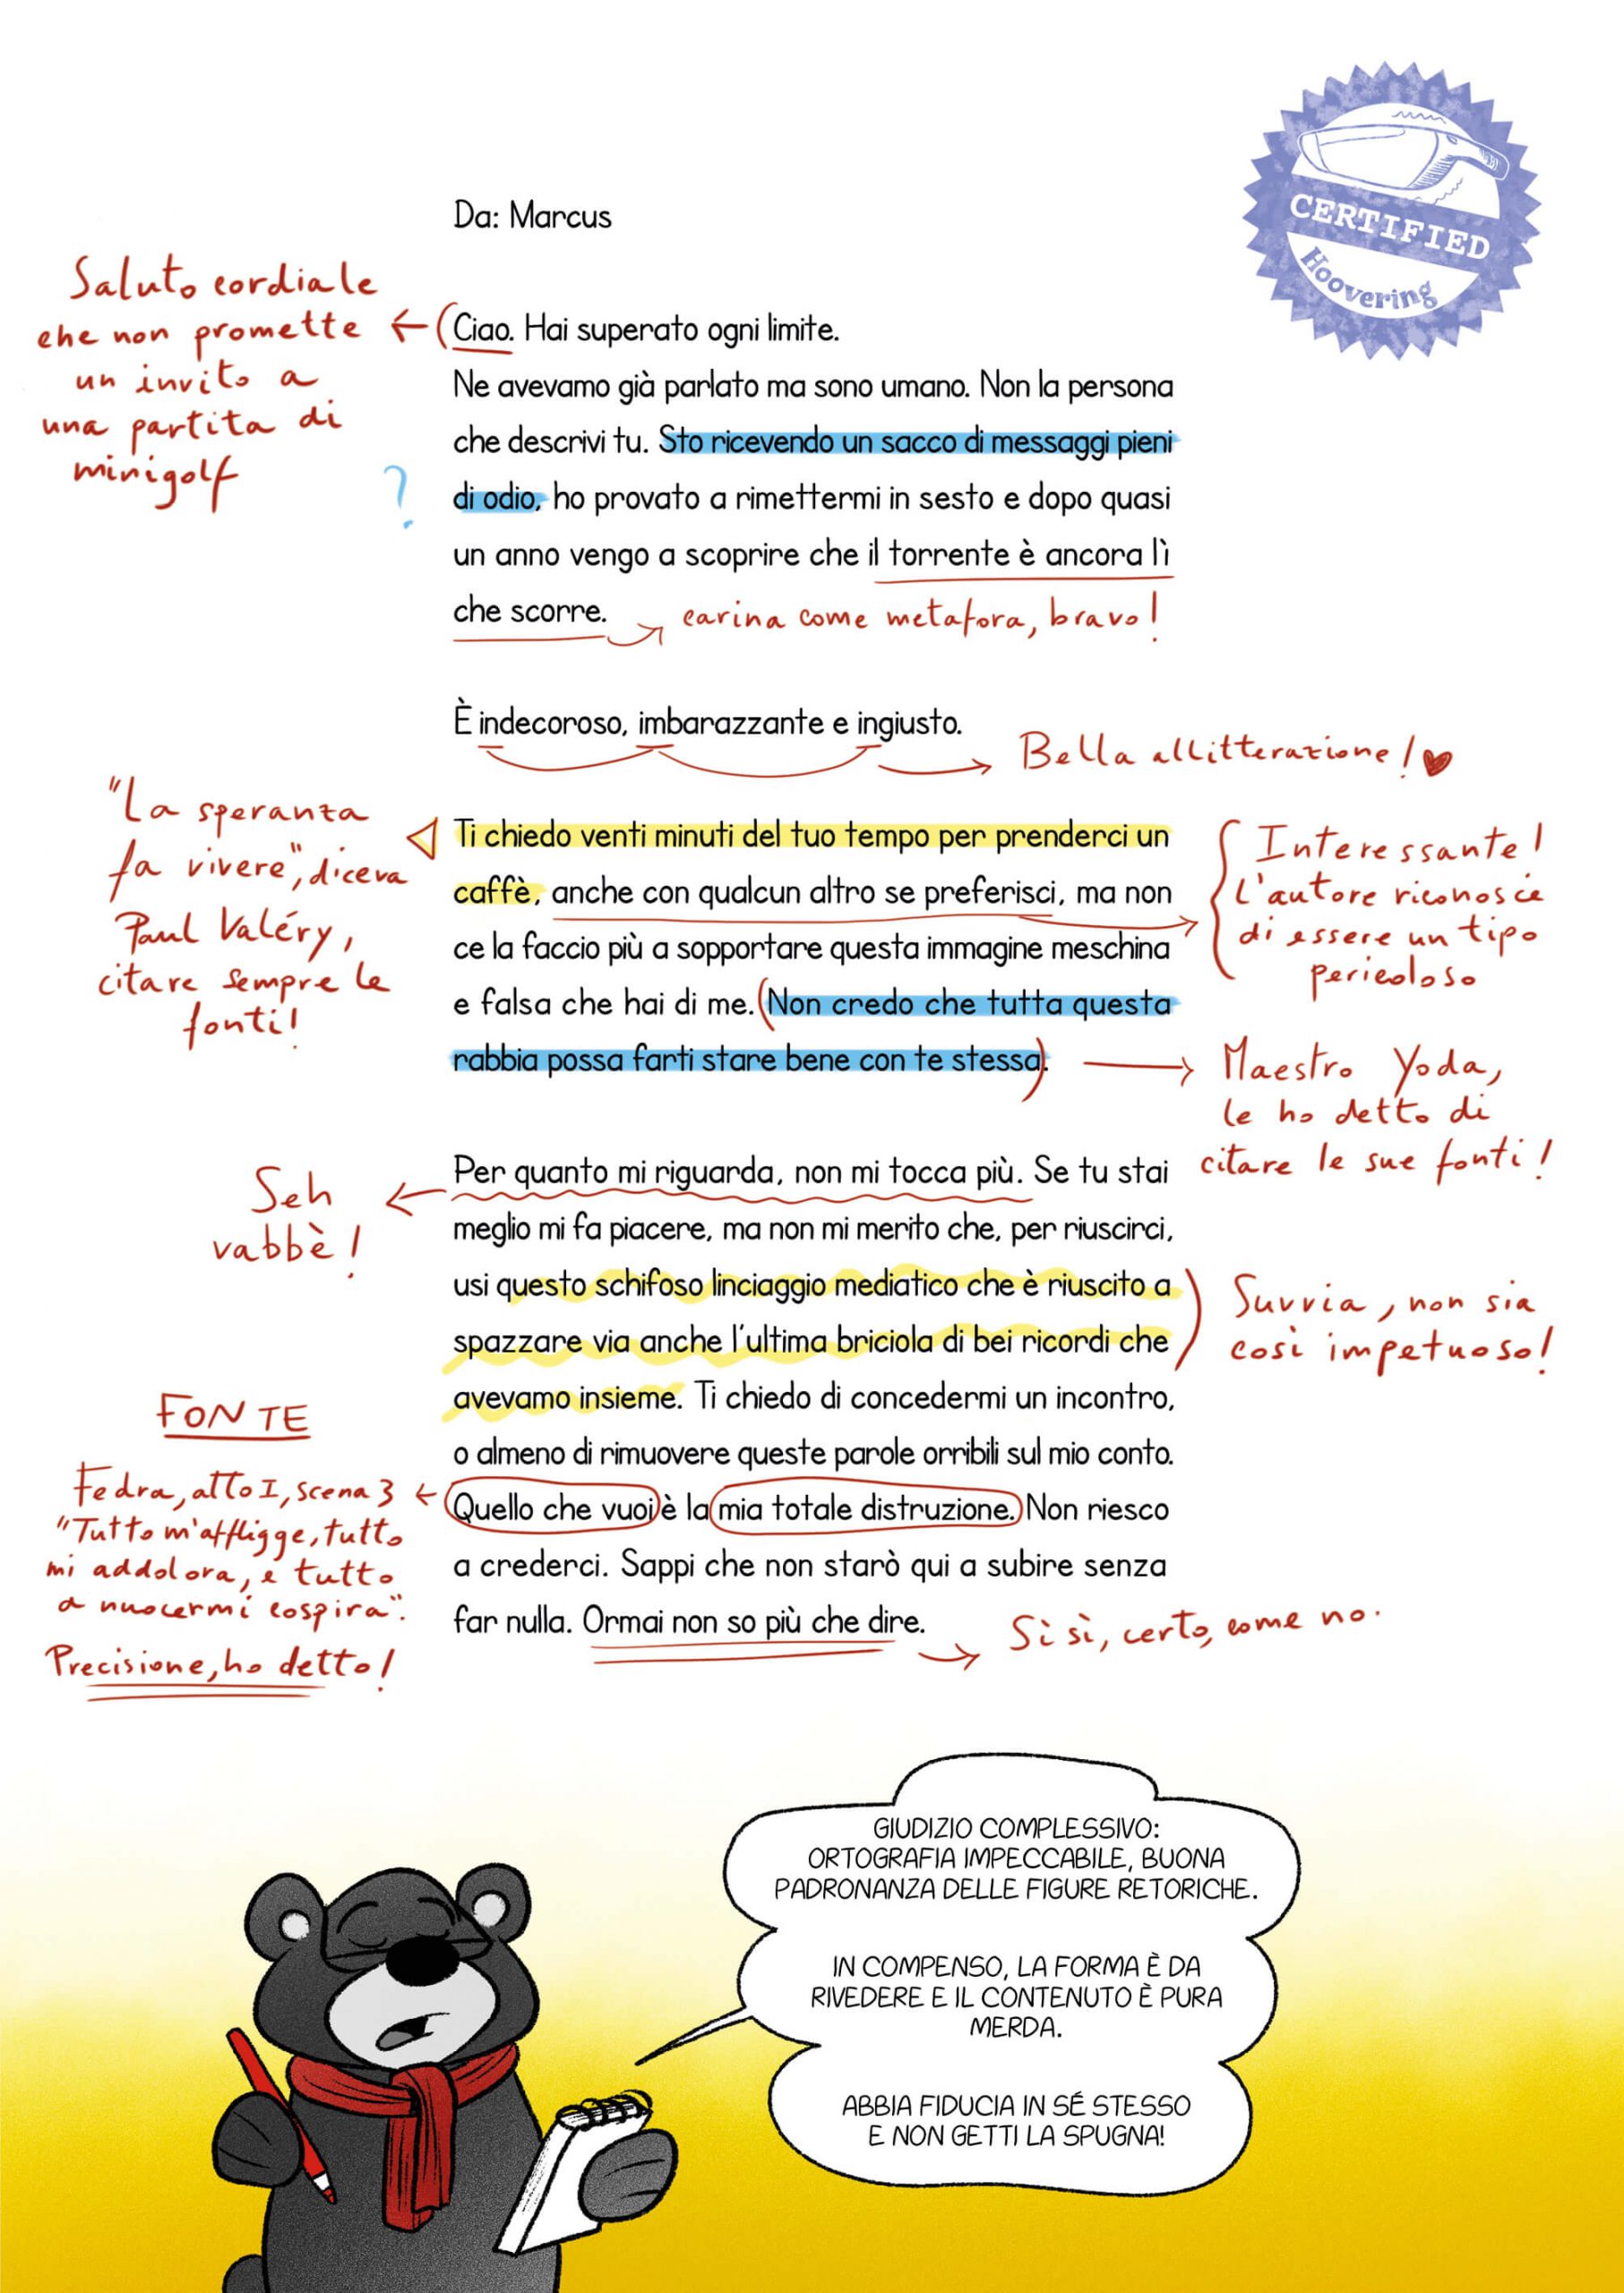 CERTIFIED
Hoovering
Da: Marcus
Saluto cordiale
che non promette
un invito a
una partita di
minigolf
Ciao. Hai superato ogni limite.
Ne avevamo già parlato ma sono umano. Non la persona
che descrivi tu. Sto ricevendo un sacco di messaggi pieni
?
di odio, ho provato a rimettermi in sesto e dopo quasi
un anno vengo a scoprire che il torrente è ancora lì
che scorre.
carina come metafora, bravo!
È indecoroso, imbarazzante e ingiusto.
Bella allitterazione!
"La speranza
fa vivere", diceva
Paul Valéry,
citare sempre le
fonti!
Ti chiedo venti minuti del tuo tempo per prenderci un
caffè, anche con qualcun altro se preferisci, ma non
ce la faccio più a sopportare questa immagine meschina
e falsa che hai di me. (Non credo che tutta questa
rabbia possa farti stare bene con te stessa).
Interessante!
L'autore riconosce
di essere un tipo
pericoloso
Maestro Yoda,
le ho detto di
citare le sue fonti!
Seh
vabbè!
Per quanto mi riguarda, non mi tocca più. Se tu stai
meglio mi fa piacere, ma non mi merito che, per riuscirci,
usi questo schifoso linciaggio mediatico che è riuscito a
spazzare via anche l'ultima briciola di bei ricordi che
avevamo insieme. Ti chiedo di concedermi un incontro,
o almeno di rimuovere queste parole orribili sul mio conto.
Quello che vuoi è la mia totale distruzione. Non riesco
a crederci. Sappi che non starò qui a subire senza
far nulla. Ormai non so più che dire.
Suvvia, non sia
così impetuoso!
FONTE
Fedra, atto I, scena 3
"Tutto m'affligge, tutto
mi addolora, e tutto
a nuocermi cospira".
Precisione, ho detto!
Sì sì, certo, come no.
GIUDIZIO COMPLESSIVO:
ORTOGRAFIA IMPECCABILE, BUONA
PADRONANZA DELLE FIGURE RETORICHE.
IN COMPENSO, LA FORMA È DA
RIVEDERE E IL CONTENUTO È PURA
MERDA.
ABBIA FIDUCIA IN SÉ STESSO
E NON GETTI LA SPUGNA!